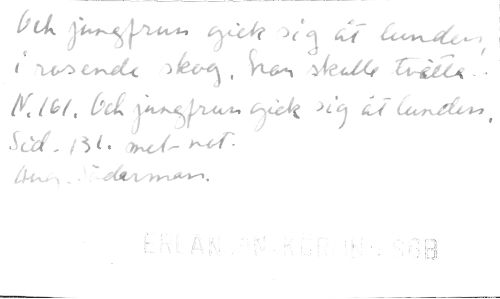 Och jungfrun gick sig åt lunden,
i rosende skog. Hon skulle tvätta..
N. 161. Och jungfrun gick sig åt lunden.
Sid. 131. met not.
Söderman.